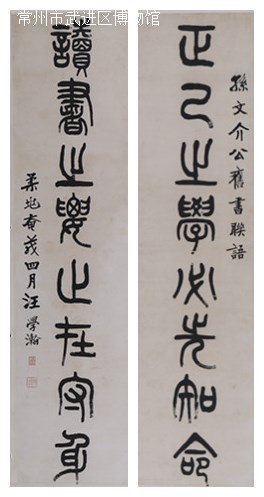 常州市武进区博物馆
孫文介公舊書聯語
正己之學必先知命
讀書之要止在守身
柔兆奄茂四月汪學瀚